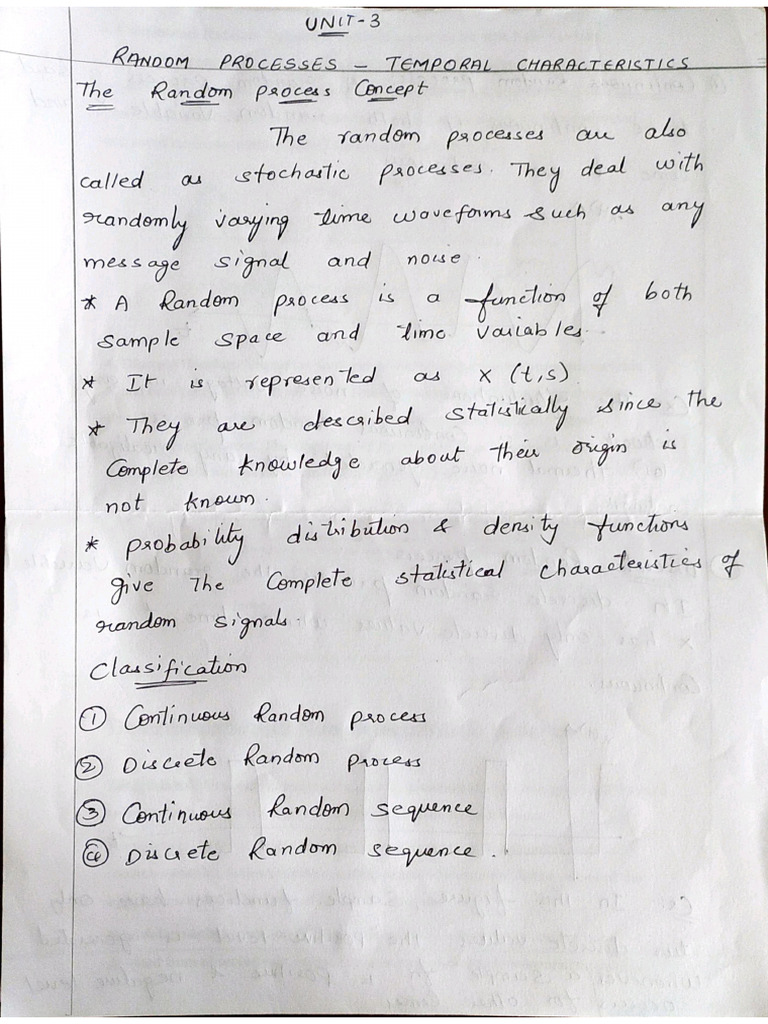 UNIT-3
RANDOM PROCESSES - TEMPORAL CHARACTERISTICS
The Random process Concept
The random processes are also
called as stochastic processes. They deal with
randomly varying time waveforms such as any
message signal and noise.
* A Random process is a function of both
sample space and time variables.
* It is represented as X (t,s)
* They are described statistically since the
Complete knowledge about their origin is
not known.
* probability distribution & density functions
give The Complete statistical characteristics of
random signals.
Classification
① Continuous Random process
② Discrete Random process
③ Continuous Random sequence
④ Discrete Random sequence.